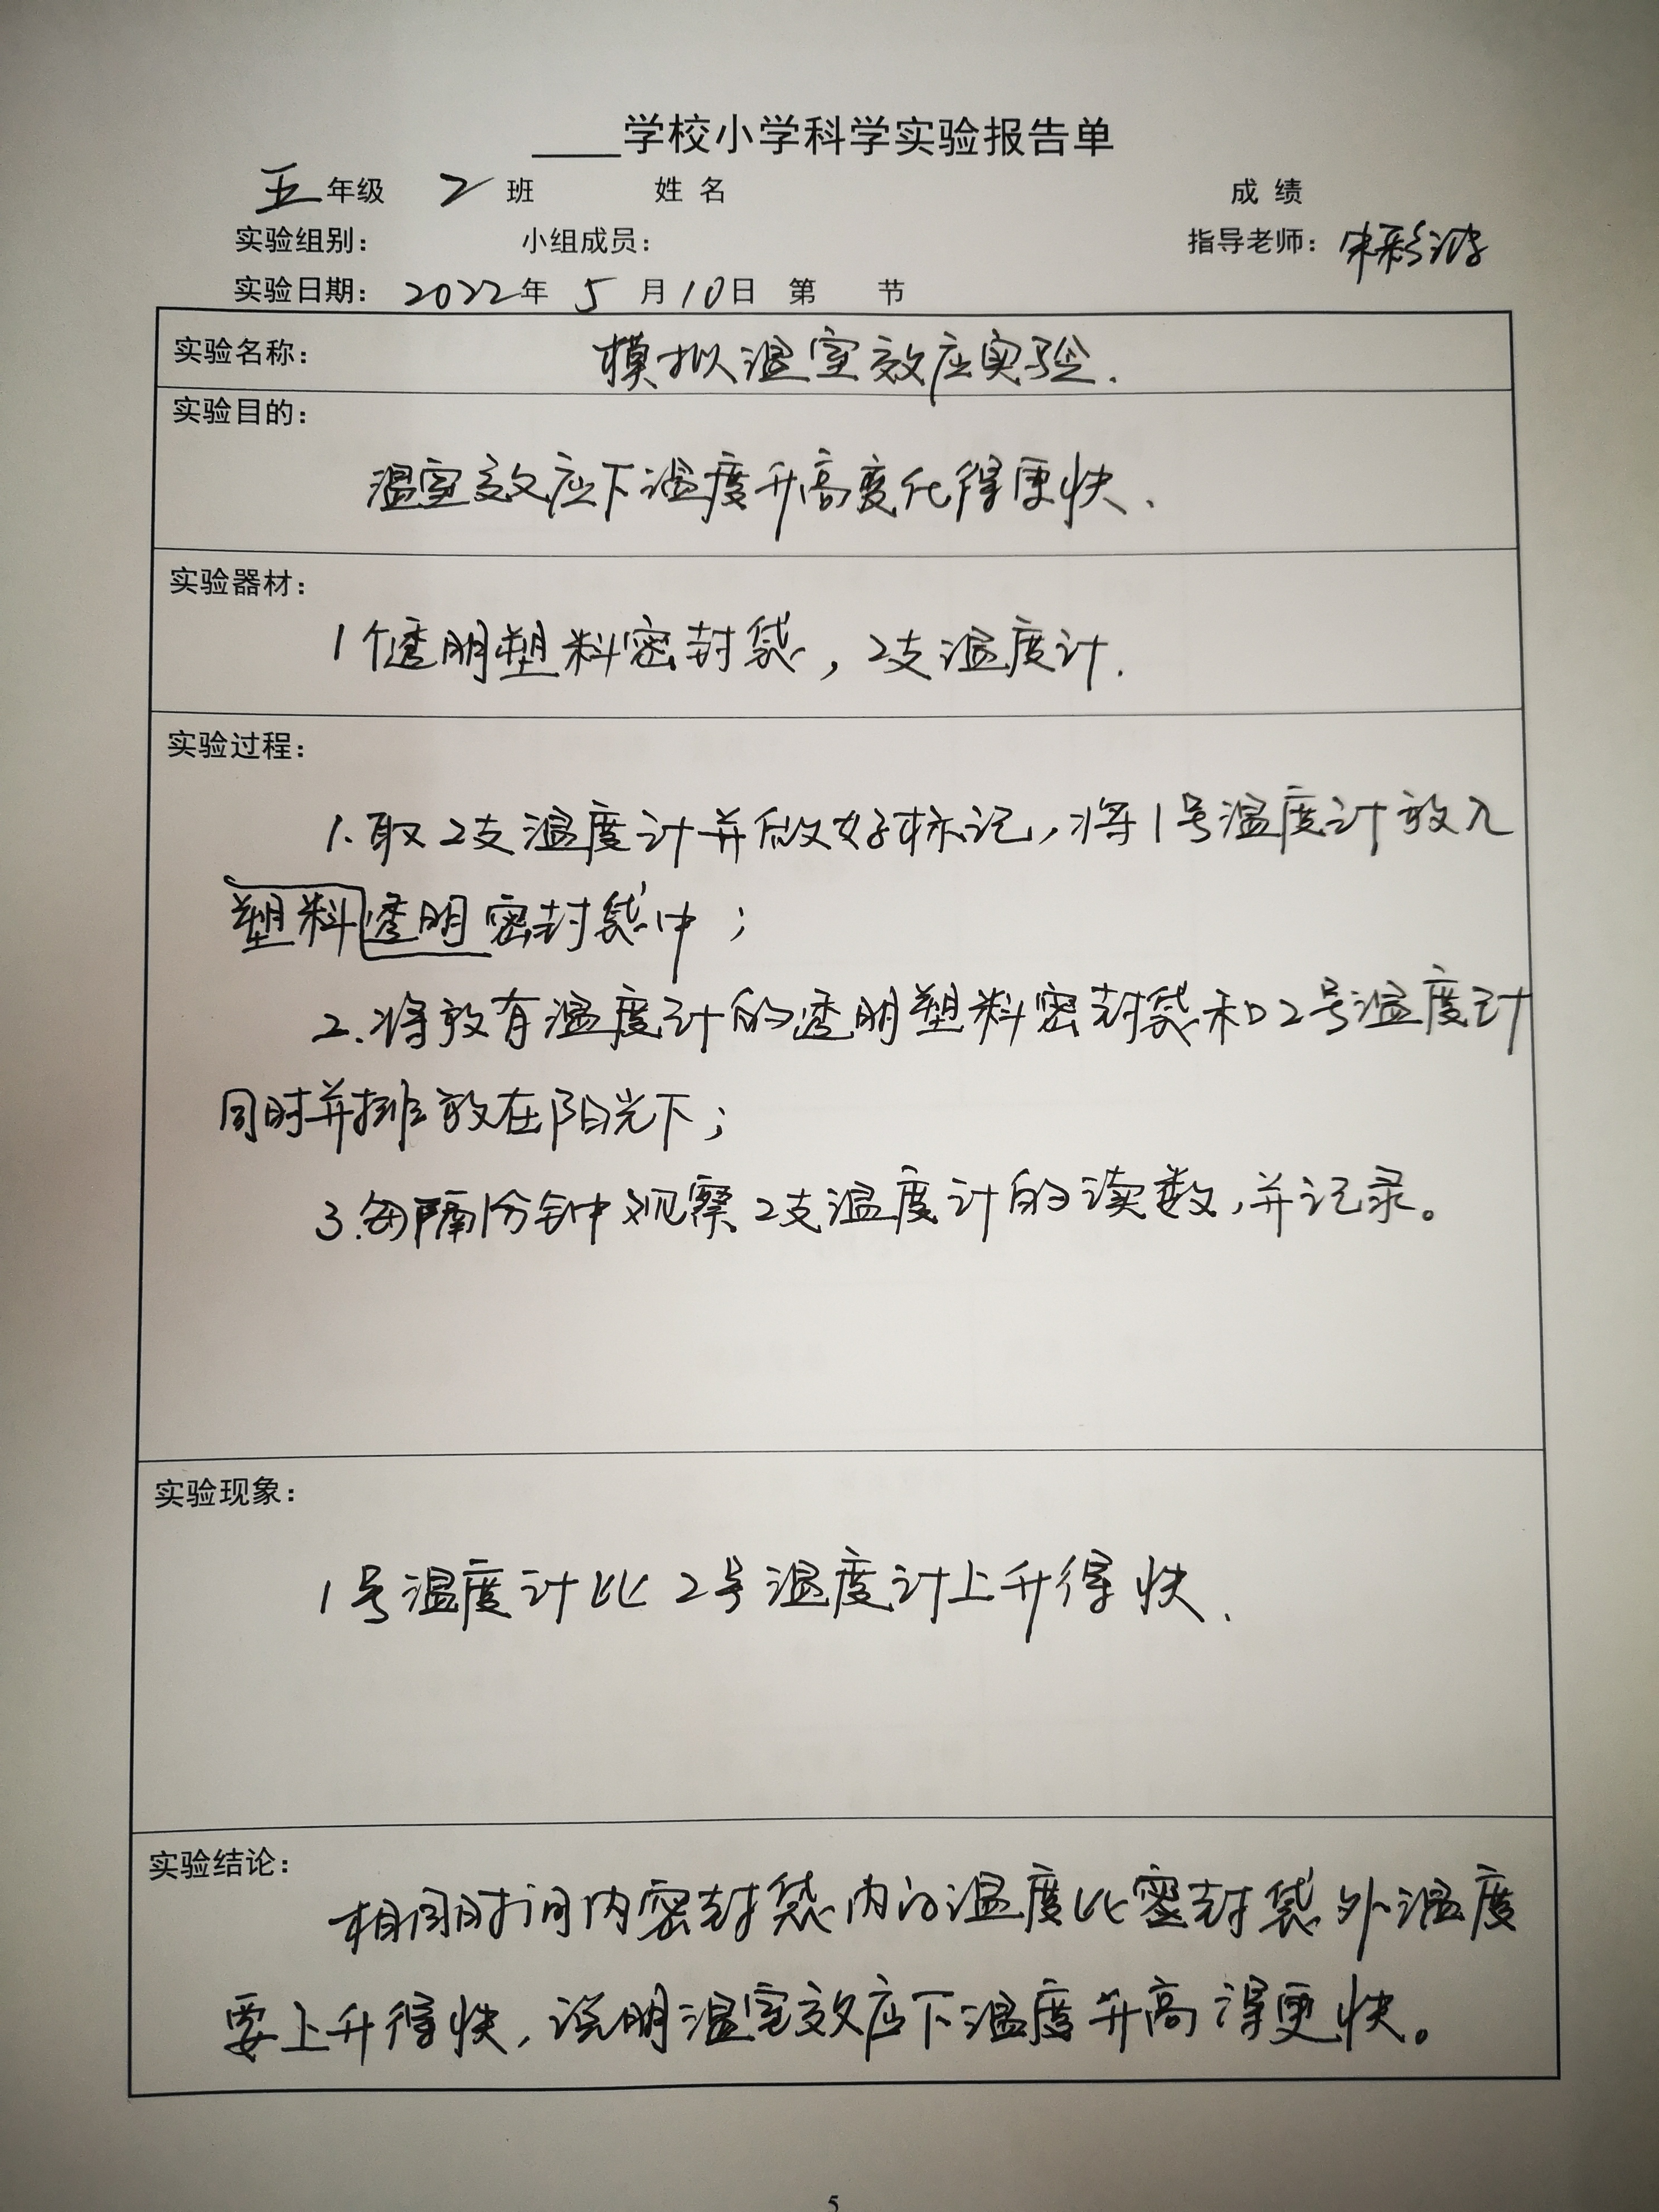 ____学校小学科学实验报告单
五年级 2 班 姓 名 成 绩
实验组别： 小组成员： 指导老师：
实验日期： 2022年 5 月10日 第 节
实验名称： 模拟温室效应实验.
实验目的：
温室效应下温度升高变化得更快.
实验器材：
1个透明塑料密封袋，2支温度计.
实验过程：
1.取2支温度计并做好标记，将1号温度计放入
塑料透明密封袋中；
2.将放有温度计的透明塑料密封袋和2号温度计
同时并排放在阳光下；
3.每隔1分钟观察2支温度计的读数，并记录。
实验现象：
1号温度计比2号温度计上升得快.
实验结论：
相同时间内密封袋内的温度比密封袋外温度
要上升得快，说明温室效应下温度升高得更快。
5